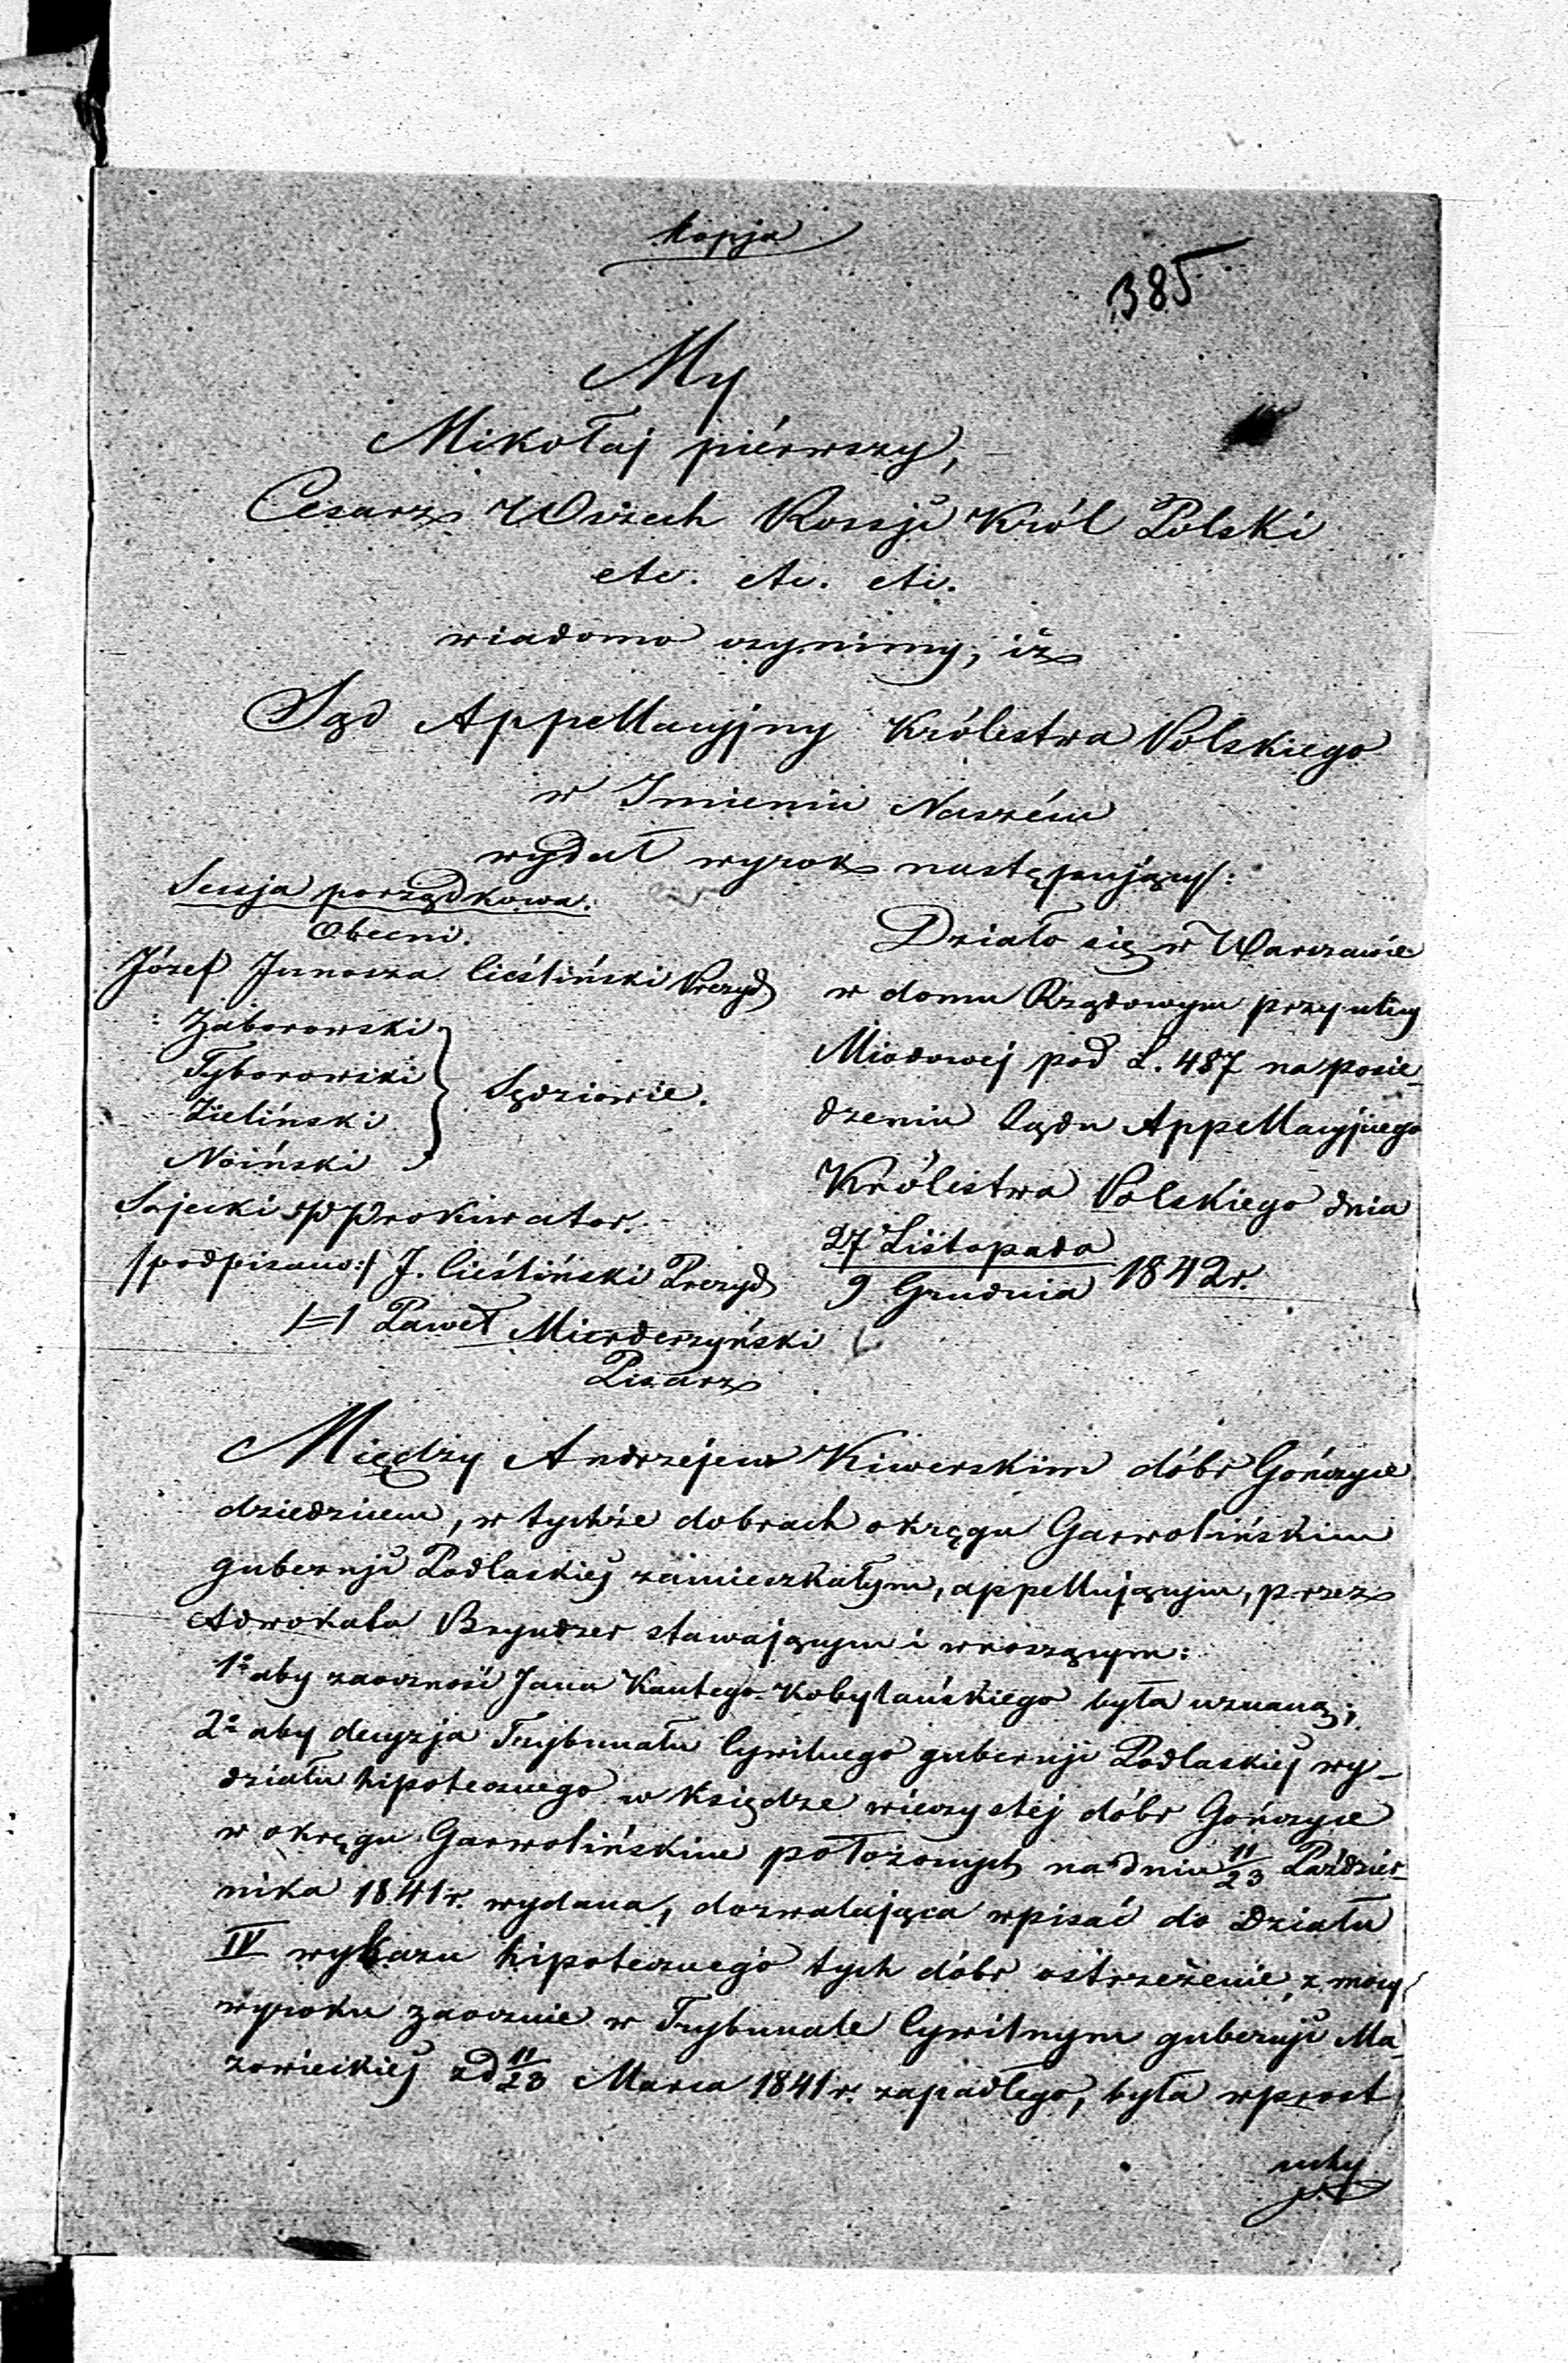 kopja
385
My
Mikołaj piérwszy,
Cesarz Wszech Rossji Król Polski
etc. etc. etc.
wiadomo czynimy, iż
Sąd Appellacyjny Królestwa Polskiego
w Imieniu Naszém
wydał wyrok następujący:
Sessja porządkowa.
Obecni.
Józef Junosza Cieśliński Prezyd
Zaborowski
Tyborowski
Zieliński
Noiński
Sędziowie.
Sajecki pprokurator.
/podpisano:/ J. Cieśliński Prezyd
/=/ Paweł Mierderzyński
Pisarz
Działo się w Warszawie
w domu Rządowym przy ulicy
Miodowej pod L. 487 na posie-
dzeniu Sądu Appellacyjnego
Królestwa Polskiego dnia
27 Listopada
9 Grudnia 1842r.
Między Andrzejem Kiwerskim dóbr Gończyce
dziedzicem, w tychże dobrach okręgu Garwolińskim
gubernji Podlaskiej zamieszkałym, appellującym, przez
Adwokata Bryndzer stawającym i wnoszącym:
1º aby zaoczność Jana Kantego Kobylańskiego była uznaną;
2º aby decyzja Trybunału Cywilnego gubernji Podlaskiej wy-
działu hipotecznego w Księdze wieczystej dóbr Gończyce
w okręgu Garwolińskim położonych na dniu 11/23 Paździer-
nika 1841r. wydana, dozwalająca wpisać do Działu
IV wykazu hipotecznego tych dóbr ostrzeżenie, z mocy
wyroku zaocznie w Trybunale Cywilnym gubernji Ma-
zowieckiej zd 11/23 Marca 1841r. zapadłego, była wprost
uchy